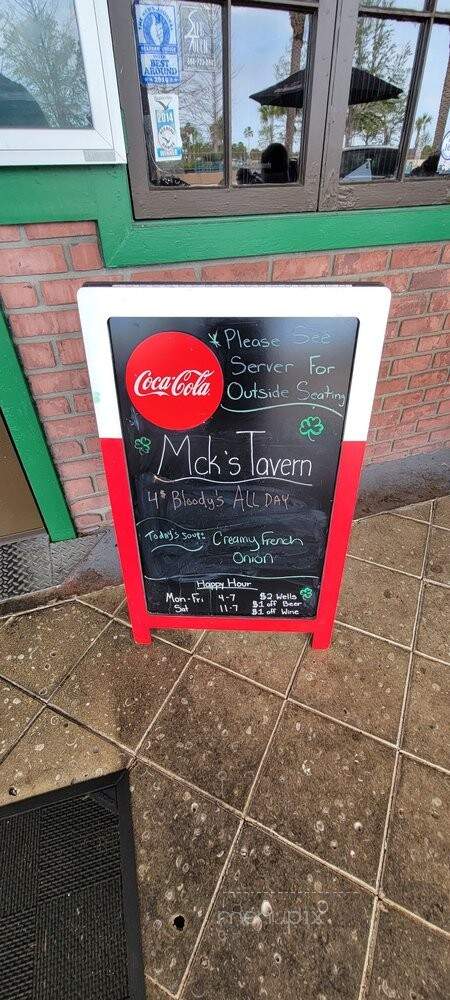 BEST
AROUND
2014
Coca-Cola
*Please See
Server For
Outside Seating
Mck's Tavern
4$ Bloody's ALL DAY
Today's soup: Creamy French
Onion
Happy Hour
Mon-Fri 4-7 $2 Wells
Sat 11-7 $1 off Beer
$1 off Wine
menupix